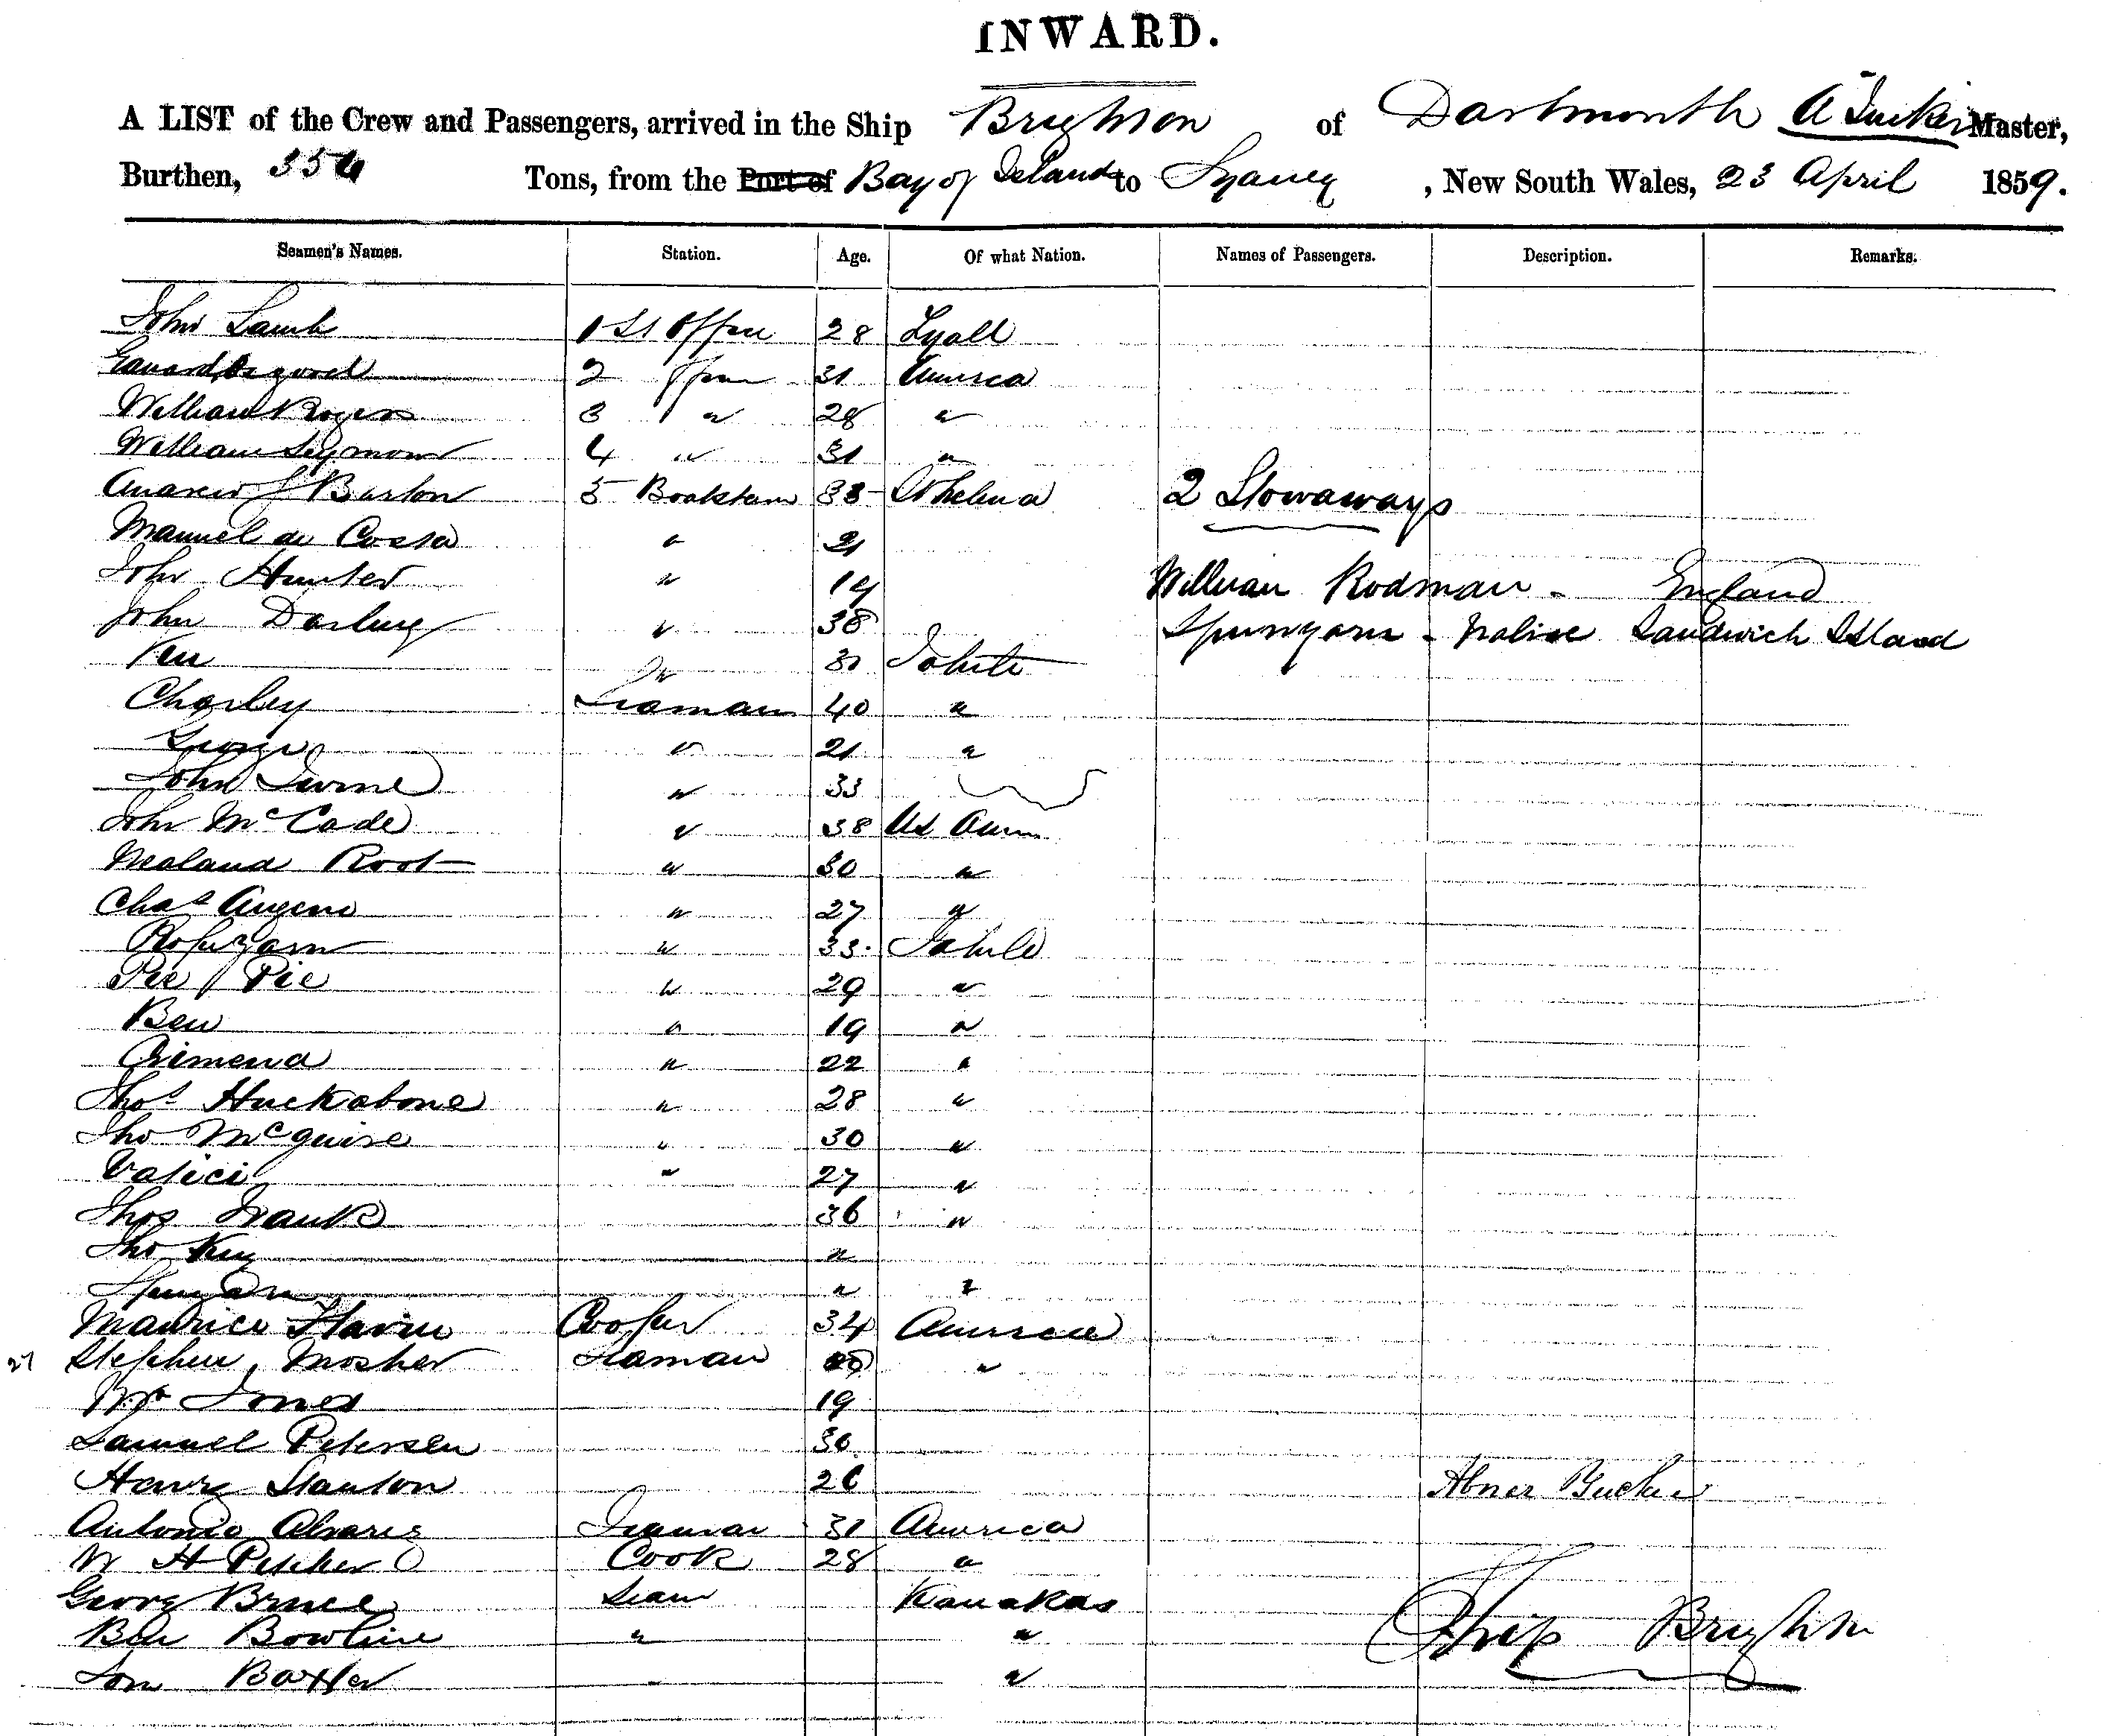 INWARD.
A LIST of the Crew and Passengers, arrived in the Ship Brighton of Dartmouth A Tucker Master,
Burthen, 354 Tons, from the Port of Bay of Islands to Sydney, New South Wales, 23 April 1859.
Seamen's Names. Station. Age. Of what Nation. Names of Passengers. Description. Remarks.
John Lamb 1 St Officer 28
Edward 2 Officer 31 America
William Rogers 3 " 28 "
William Seymour 4 " 31 "
Andrew J Barton 5 Boatsteer 33 2 Stowaways
Manuel de Costa " 21
John Hunter " 19 William Rodman - England
John Darling " 38 Spunyarn - Native Sandwich Island
" 31 Tahite
Charley Seaman 40 "
George " 21 "
John Irvine " 33
John McCade " 38 US Amer
Root " 30 "
Chas " 27 "
Ropeyarn " 33. Tahite
Pee Pie " 29 "
Ben " 19 "
" 22 "
Thos Huckabone " 28 "
Tho McGuire " 30 "
" 27 "
Thos Frank 36 "
Tho King "
Spunyarn " "
Maurice Flavin Cooper 34 America
27 Stephen Mosher Seaman "
Wm Jones 19
Samuel Petersen 30
Henry Stanton 26 Abner Tucker
Antonio Alvares Seaman 31 America
W H Pitcher Cook 28 "
George Bruce Seam Kanakas
Ben Bowline " " Ship Brighton
Tom Baxter "